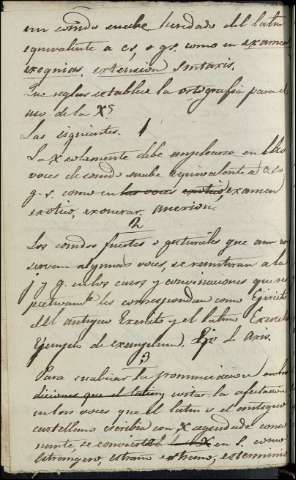 un sonido suabe heredado del latin
equivalente a cs, o gs, como en examen
exequias, extension sintaxis.
Que reglas establece la ortografía para el
uso de la X?
Las siguientes. 1
La X solamente debe emplearse en
voces de sonido suabe equivalente a cs o
g-s, como en las voces exotico, examen
exotico, exonerar,
2
Los sonidos fuertes o guturales que aun con
servan algunas voces, se remitiran a la
j y g, en los casos y convinaciones que res
pectivamte les correspondan como Ejército
del antiguo Exercito y el latino Exercitus
Ejemplo de exemplum, Eje de Axis.
3
Para suabizar la pronunciacion
que el latin, evitar la afectacion
en las voces que el latin y el antiguo
castellano escribia con X seguida de conso
nante, se convierte la X en s. como
estrangero, estraño estremo, esterminio